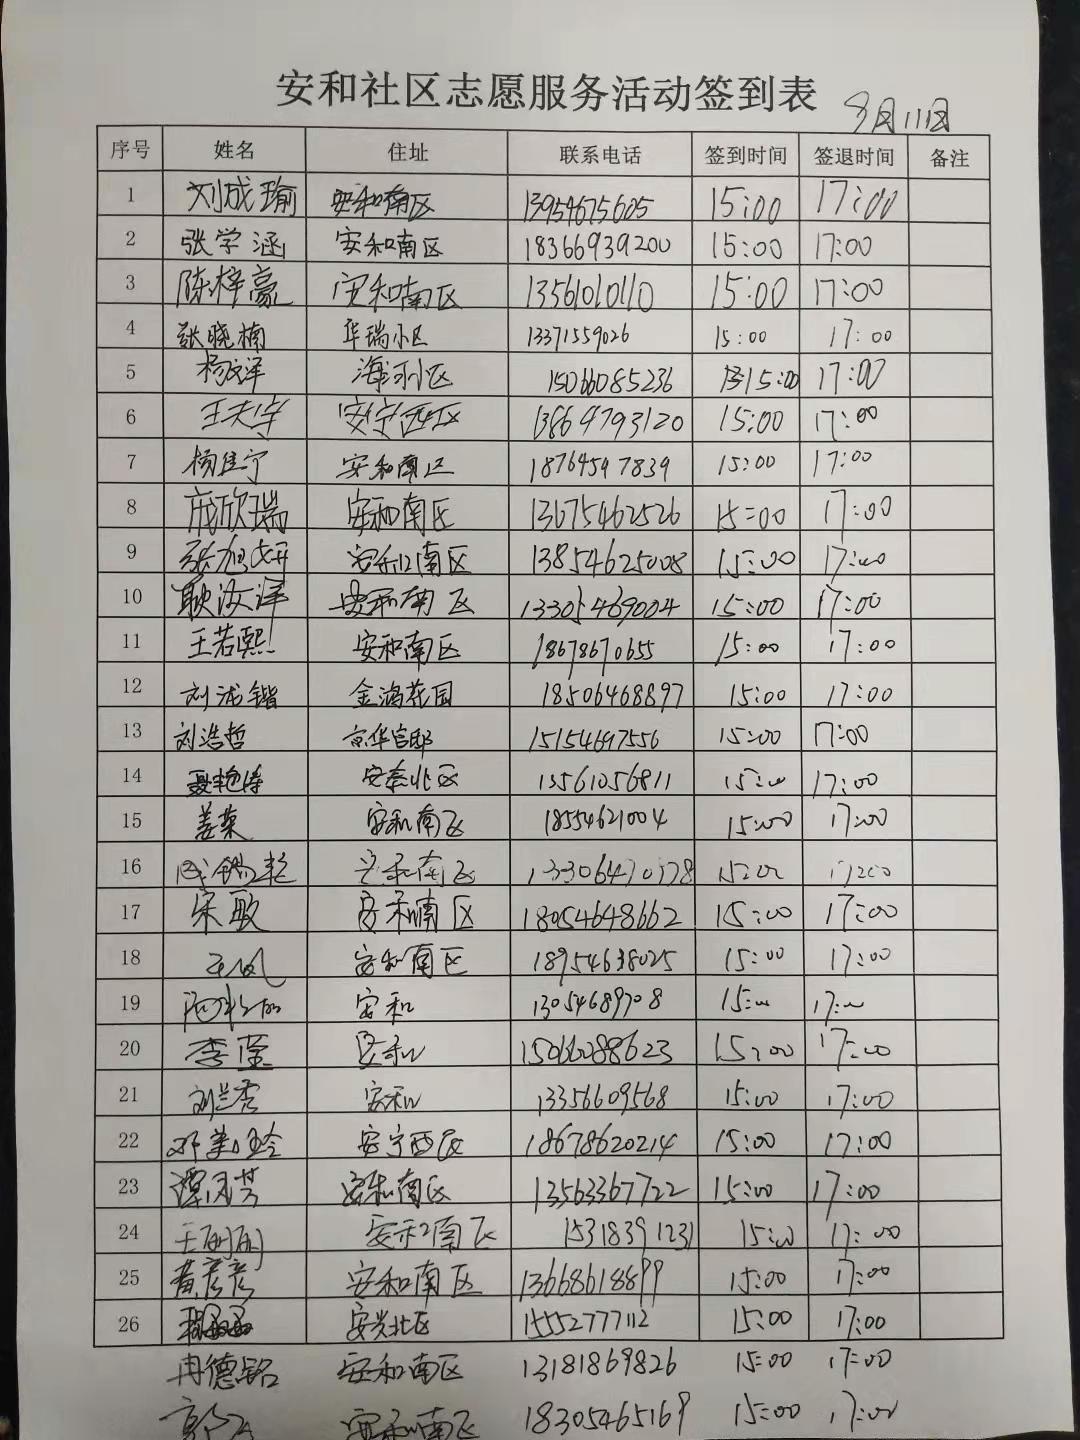 安和社区志愿服务活动签到表
8月11日
序号 姓名 住址 联系电话 签到时间 签退时间 备注
1 刘成瑜 安和南区 13954675605 15:00 17:00
2 张学涵 安和南区 18366939200 15:00 17:00
3 陈梓豪 安和南区 13561010110 15:00 17:00
4 张晓楠 华瑞小区 13371559026 15:00 17:00
5 杨文泽 海河小区 15066085236 15:00 17:00
6 王天宇 安宁西区 13864793120 15:00 17:00
7 杨佳宁 安和南区 18764547839 15:00 17:00
8 成欣瑞 安和南区 13675462526 15:00 17:00
9 张旭妍 安和南区 13854625008 15:00 17:00
10 耿汝洋 安和南区 13305469004 15:00 17:00
11 王若熙 安和南区 18678670655 15:00 17:00
12 刘 锴 金鸿花园 18506468897 15:00 17:00
13 刘浩哲 京华官邸 15154697556 15:00 17:00
14 聂艳涛 安泰北区 13561056811 15:00 17:00
15 姜荣 安和南区 18554621004 15:00 17:00
16 安和南区 15:00 17:00
17 宋敏 安和南区 18054648662 15:00 17:00
18 安和南区 18954638025 15:00 17:00
19 安和 13054689708 15:00 17:00
20 李莹 安和 15066088623 15:00 17:00
21 刘兰秀 安和 13356609568 15:00 17:00
22 邓美玲 安宁西区 18678620214 15:00 17:00
23 谭凤芳 安和南区 13563367722 15:00 17:00
24 王丽丽 安和南区 15318391231 15:00 17:00
25 黄彦彦 安和南区 13668618899 15:00 17:00
26 安兴北区 15552777112 15:00 17:00
冉德铭 安和南区 13181869826 15:00 17:00
郭飞 安和南区 18305465169 15:00 17:00